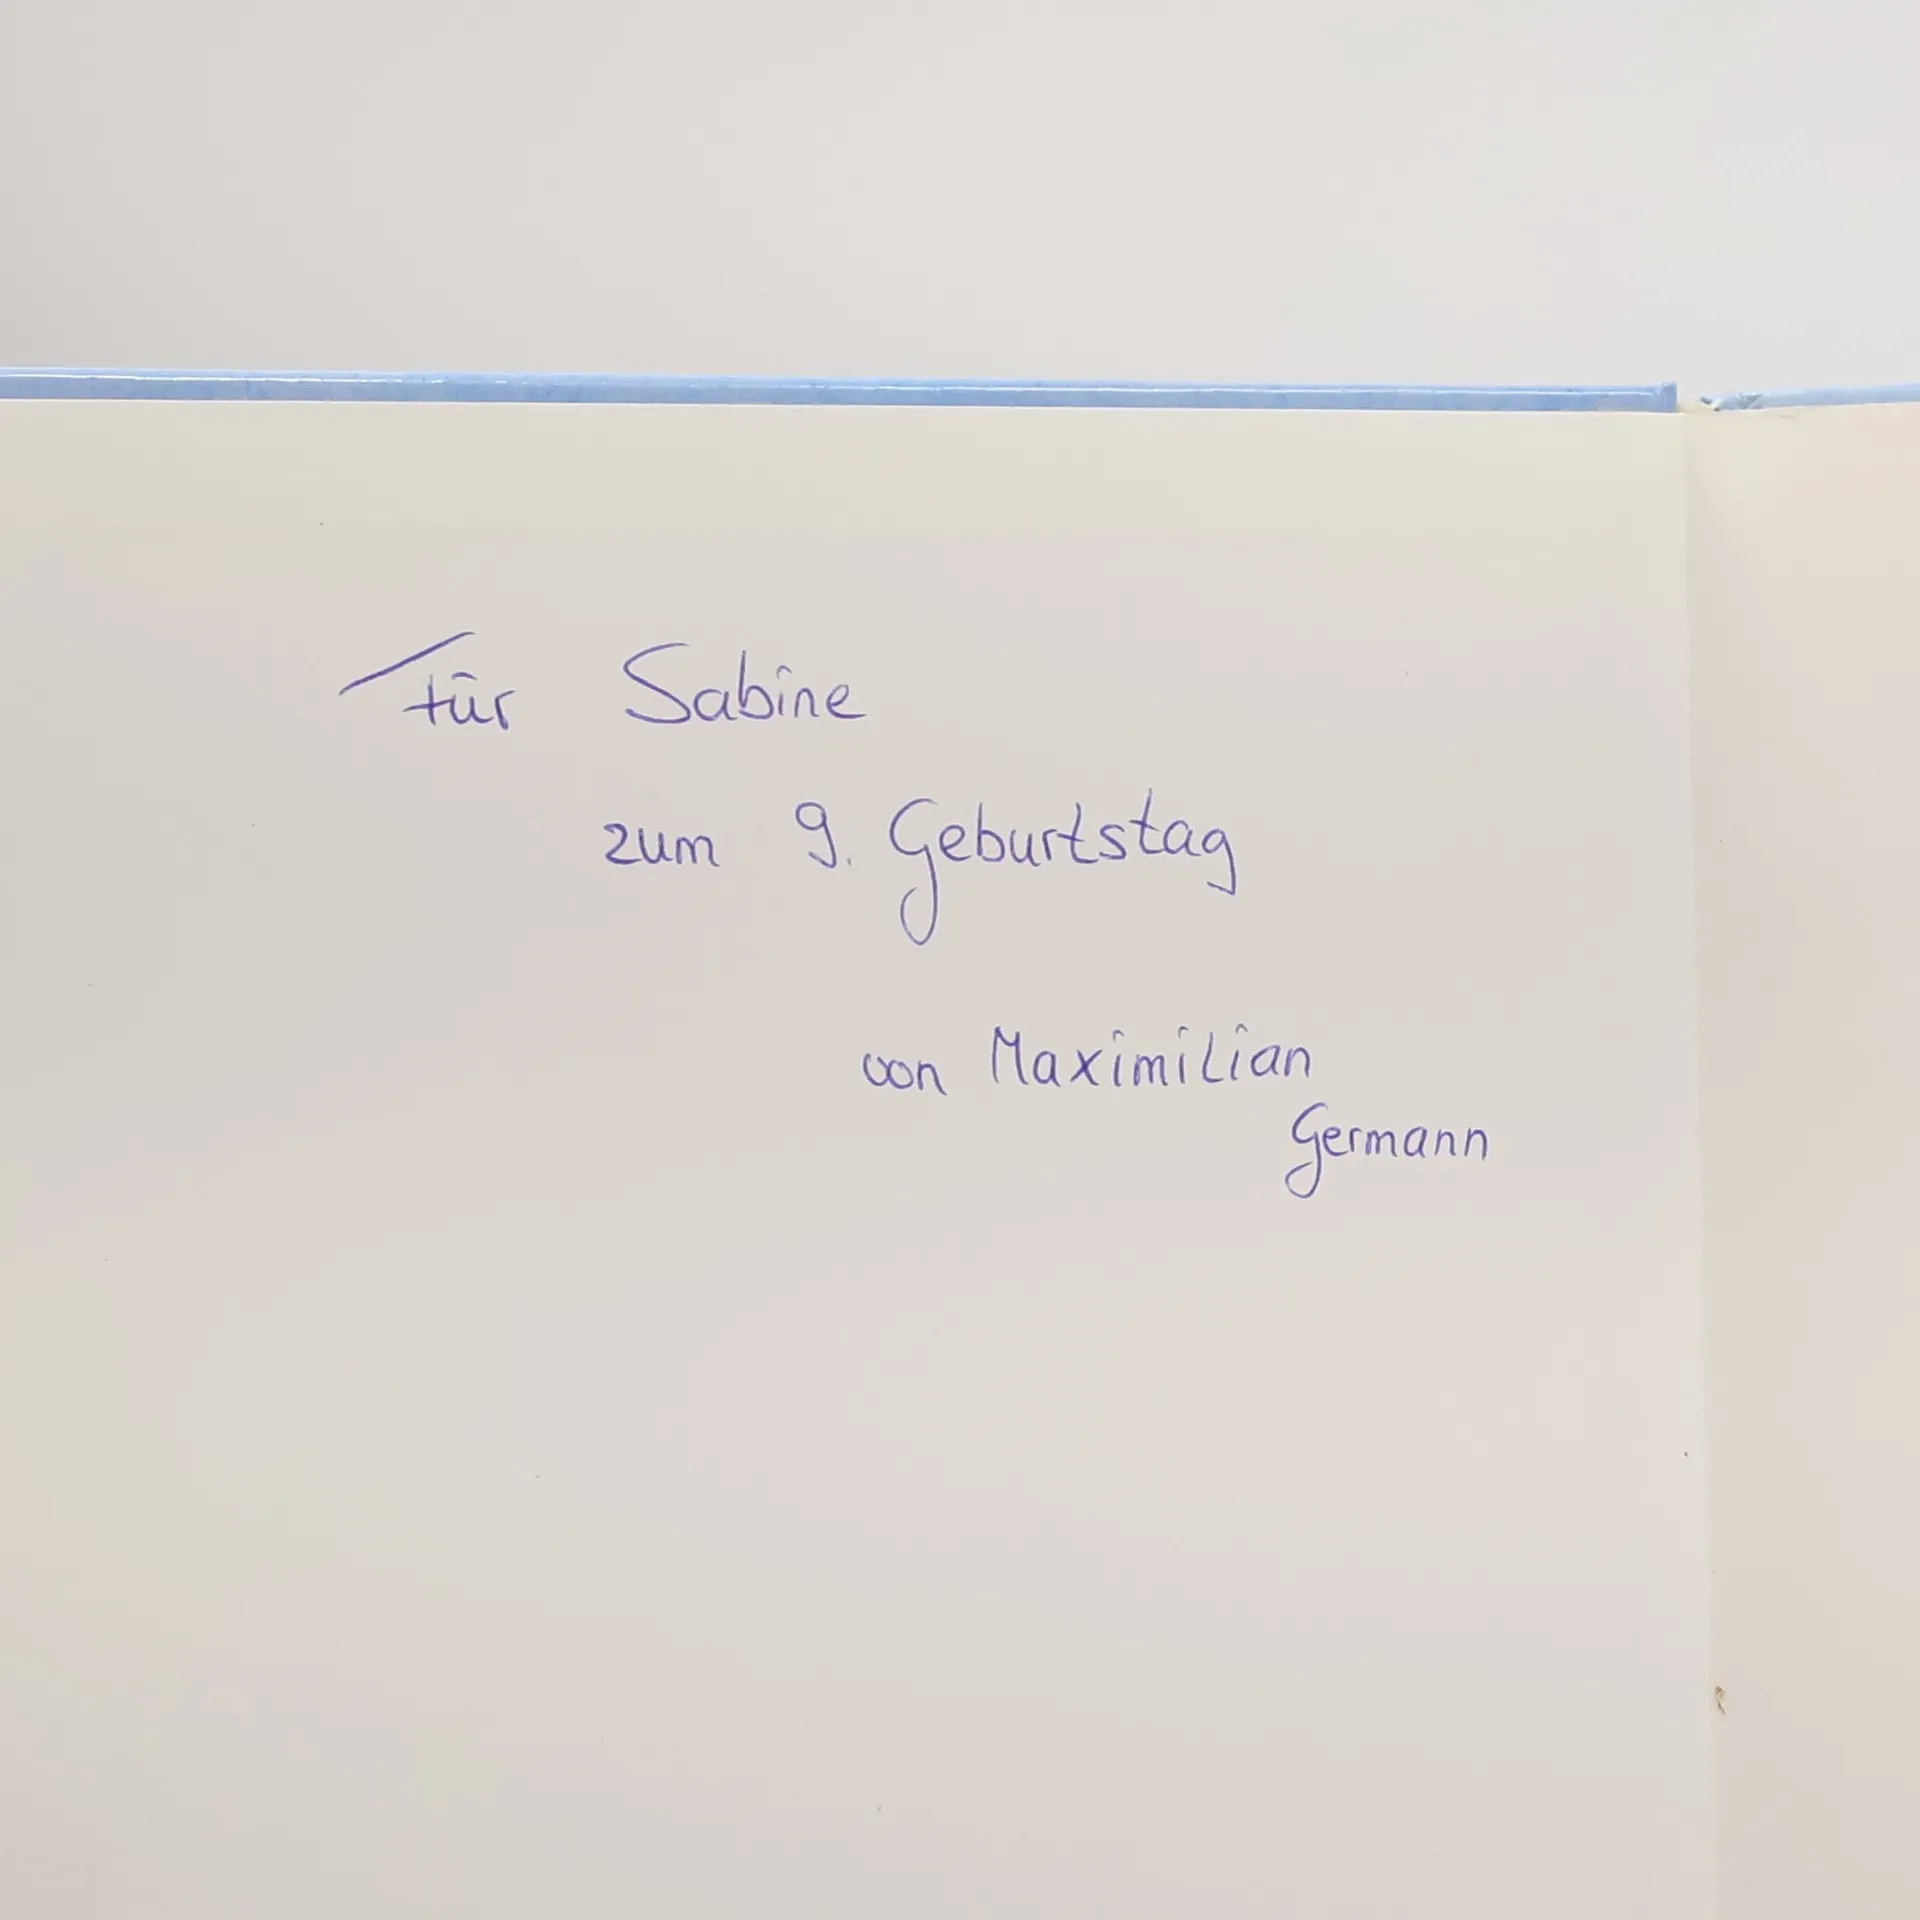 Für Sabine
zum 9. Geburtstag
von Maximilian
Germann